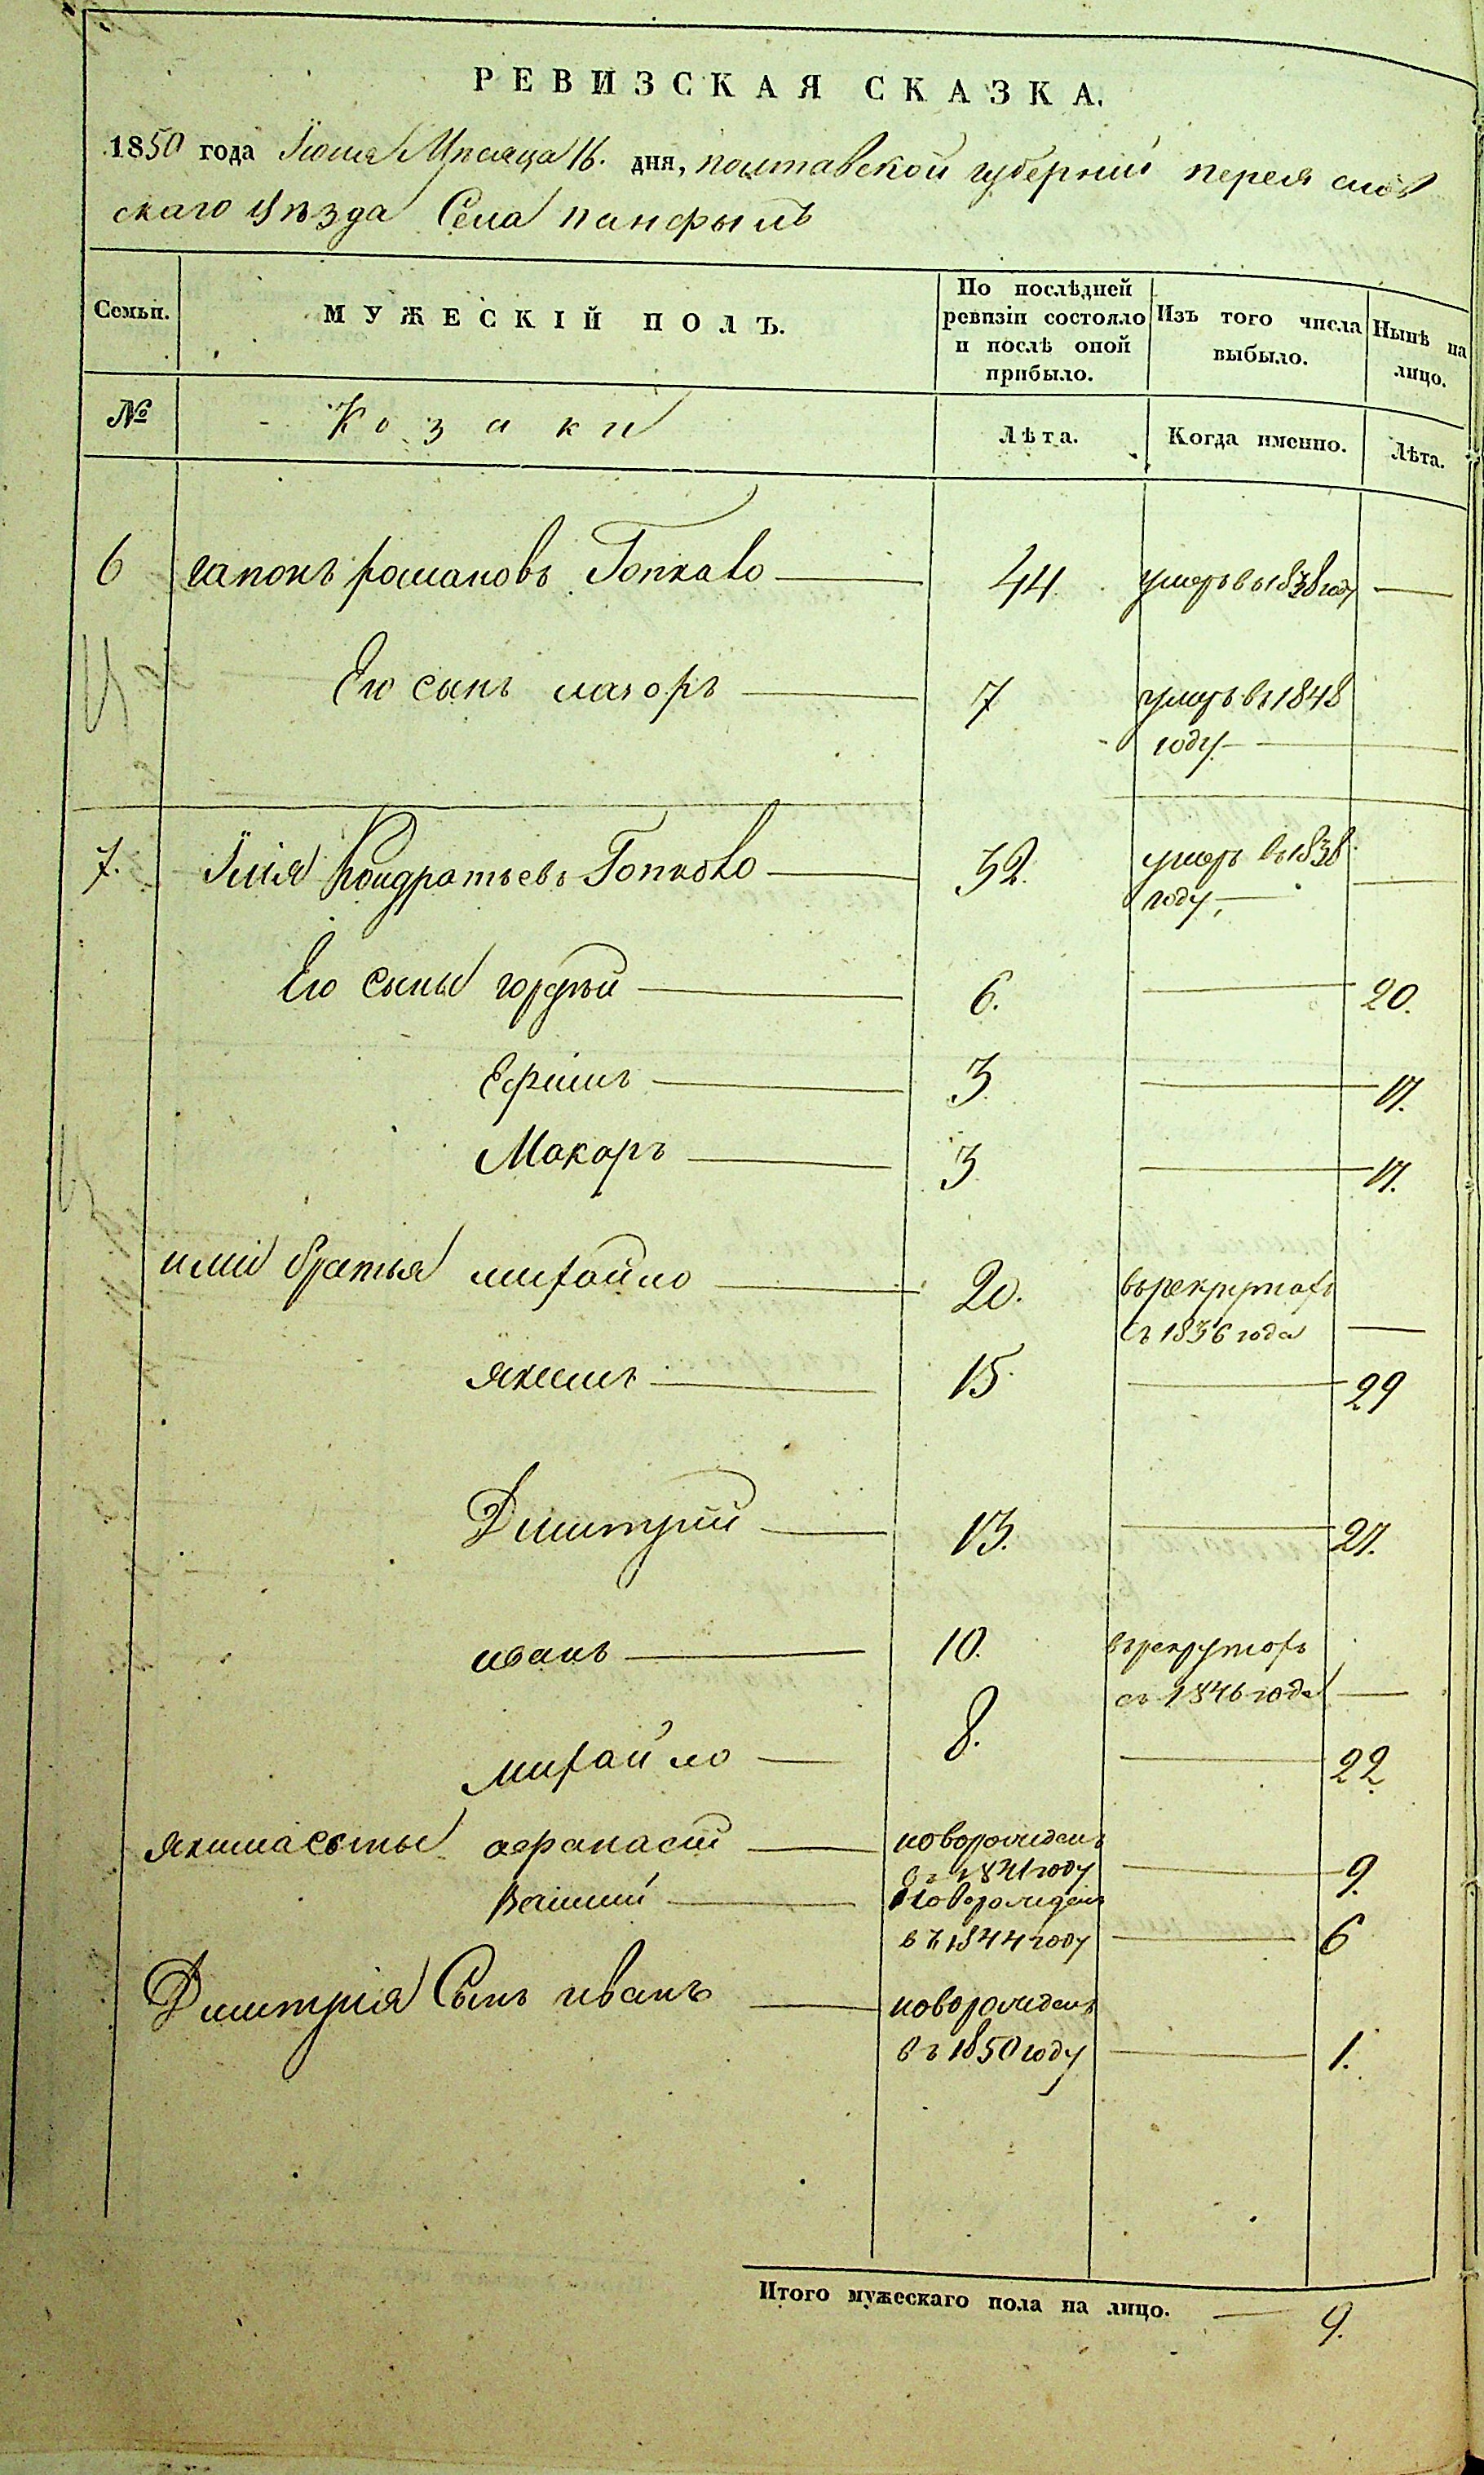 РЕВИЗСКАЯ СКАЗКА.
1850 года Июня Мѣсяца 16. дня, полтавской губернии переяслов
скаго уѣзда Села панфылъ
Семьи.
МУЖЕСКІЙ ПОЛЪ.
По послѣдней
ревизіи состояло
и послѣ оной
прибыло.
Изъ того числа
выбыло.
Нынѣ на
лицо.
№
Козаки
Лѣта.
Когда именно.
Лѣта.
6 гапонъ романовъ 44 умеръ въ 1838 году
Его сынъ лазоръ 7 умеръ въ 1848
году
7. Илія Кондратьевъ 32. умеръ въ 1838
году
Его сыны гордѣй 6. 20.
Ефимъ 3 17.
Макаръ 3 17.
илии братья михайло 20. върекрутахъ
съ 1836 года
якимъ 15. 29
Димитрий 13. 27.
иванъ 10. върекрутахъ
съ 1846 года
михайло 8. 22
якима сыны афанасий новорожденъ
въ 1841 году 9.
новорожденъ
въ 1844 году 6
Димитрия Сынъ иванъ новорожденъ
въ 1850 году 1.
Итого мужескаго пола на лицо. 9.